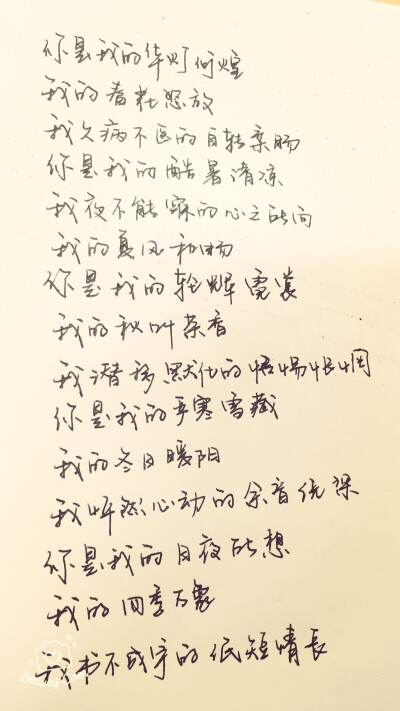 你是我的华灯何煌
我的春怒放
我久病不医的百转柔肠
你是我的酷暑清凉
我夜不能寐的心之所向
我的夏风和畅
你是我的轻霓裳
我的秋叶茶香
我潜移默化的怅惘
你是我的寒雪藏
我的冬日暖阳
我怦然心动的余音绕梁
你是我的日夜所想
我的四季万象
我书不成字的纸短情长